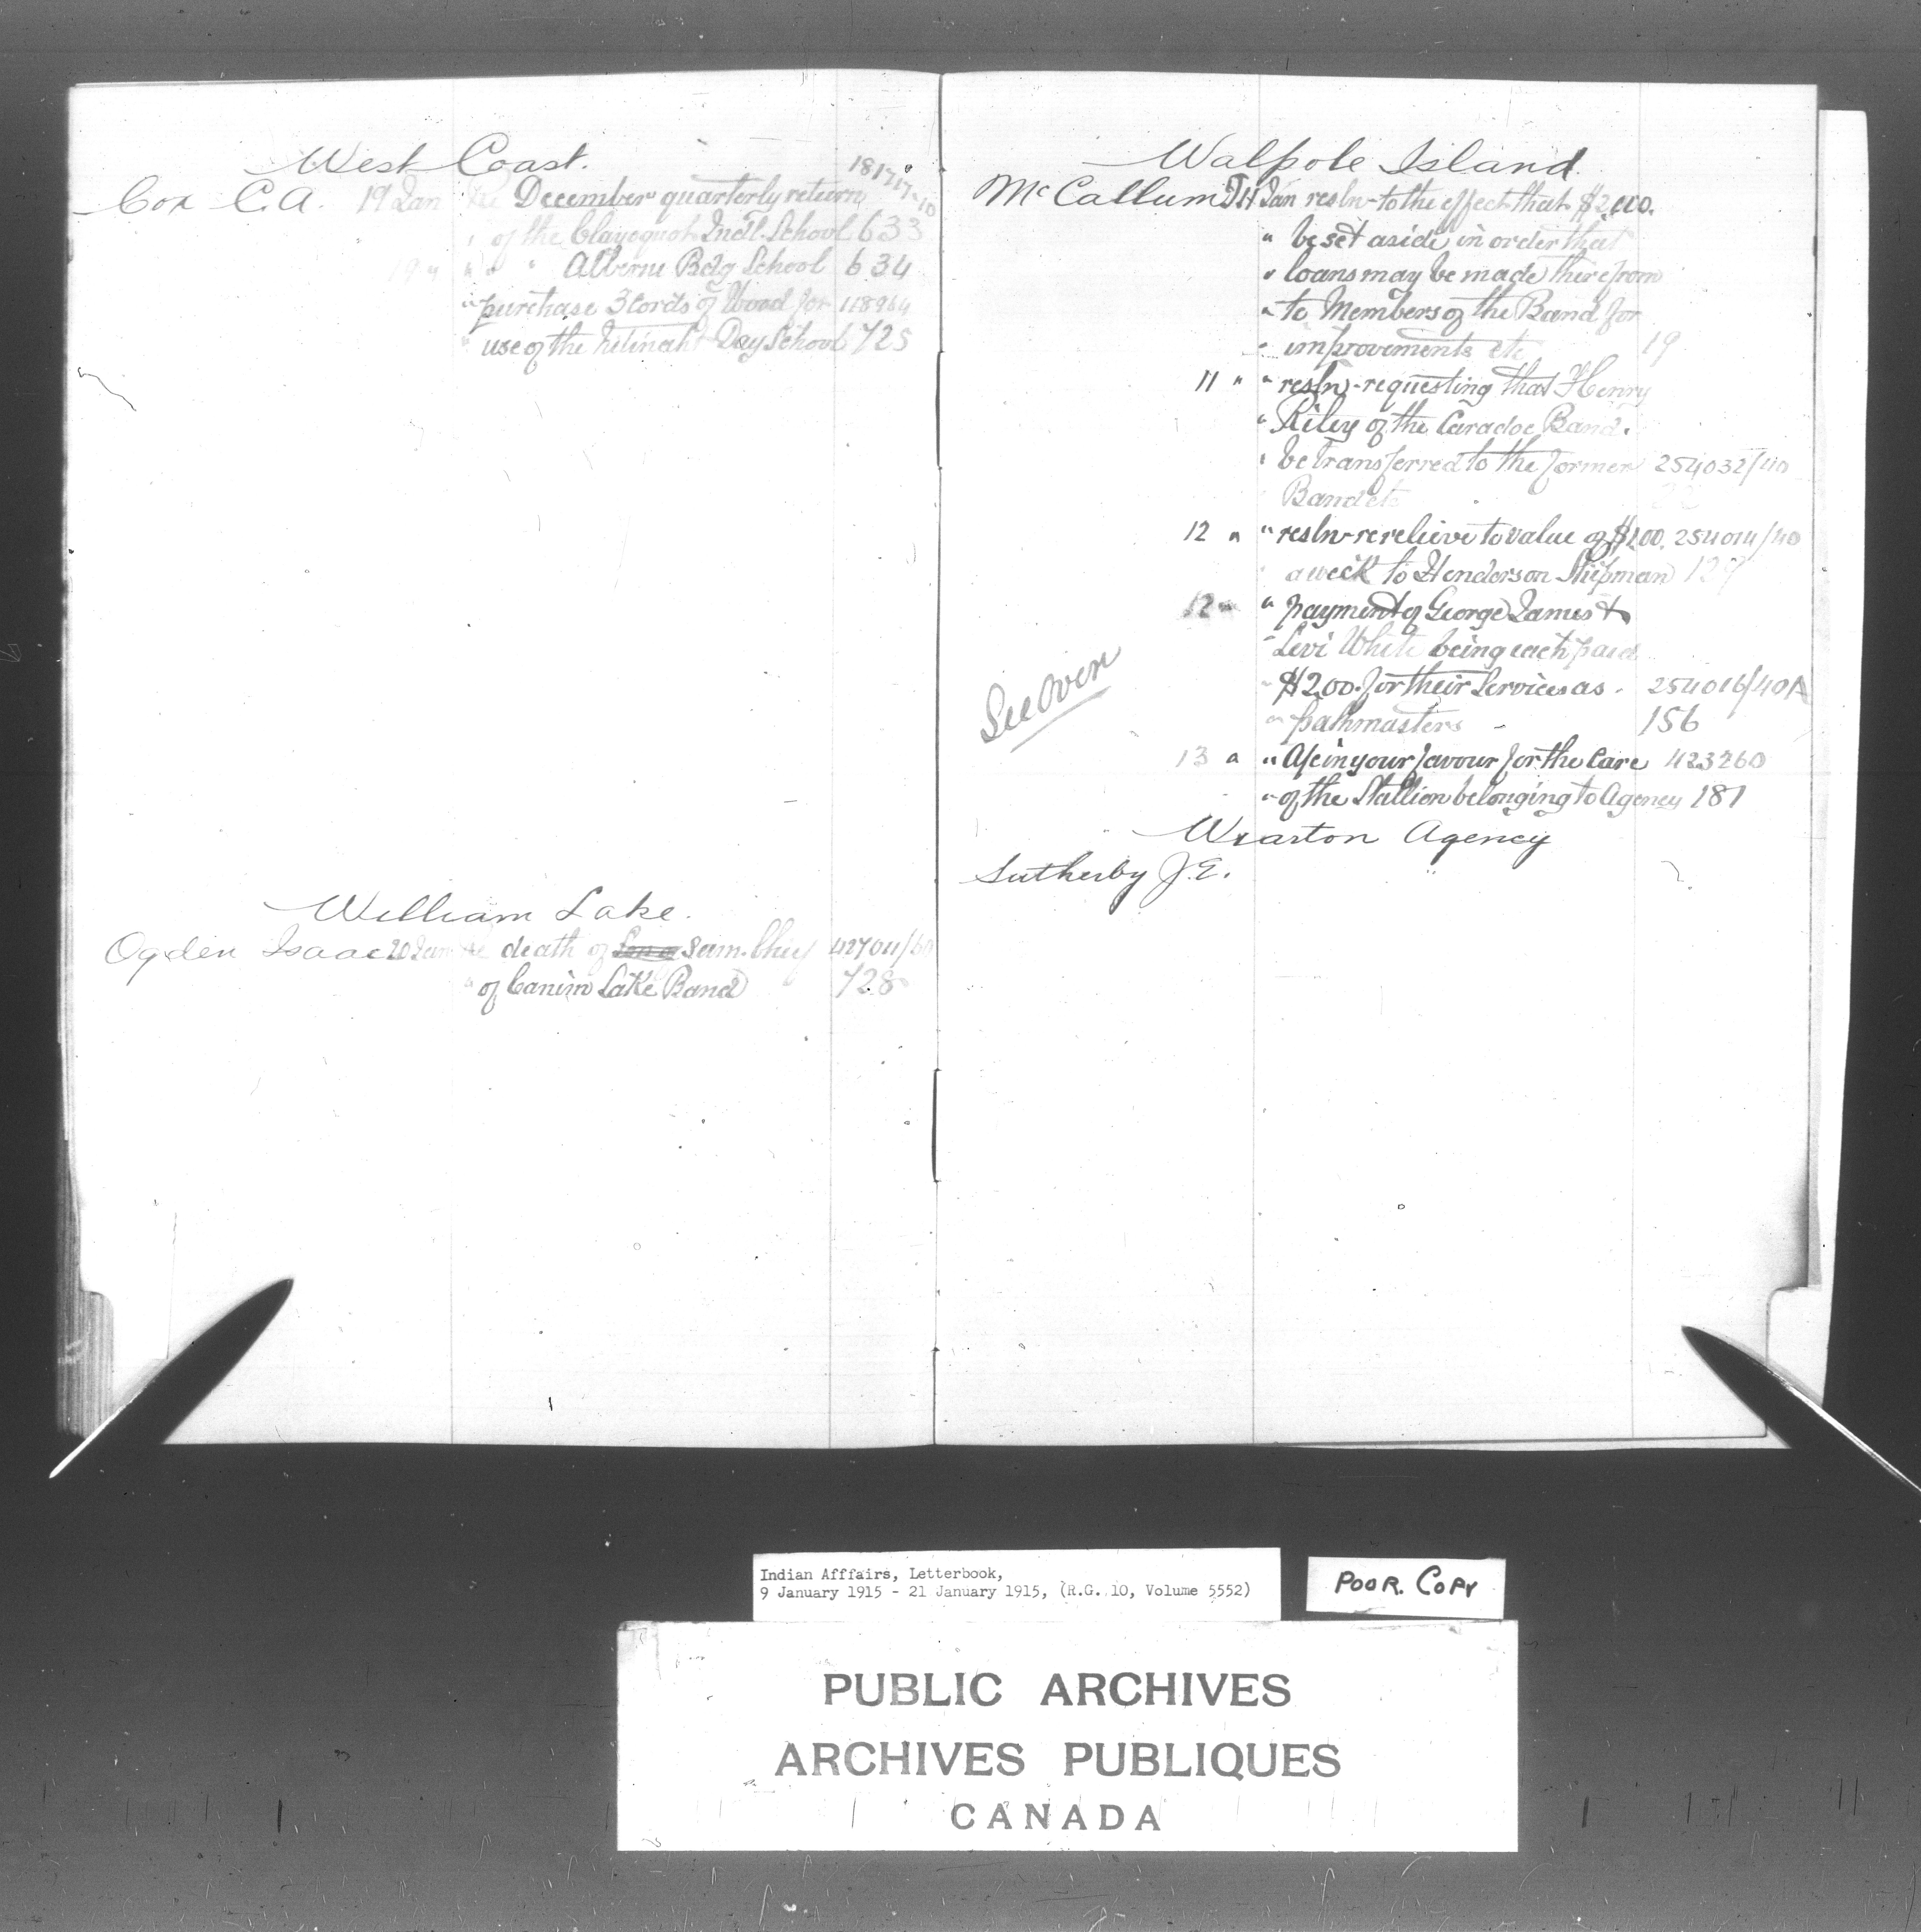 West Coast.
181717-10
Cox C.A. 19 Jan Re December quarterly return
" of the Clayoquot Indl. School 633
19 " " " " Alberni Bdg School 634
" purchase 3 cords of Wood for 118964
" use of the Day School 725
William Lake.
Ogden Isaac 20 Jan Re death of Sam. Chief 42704/60
" of Canim Lake Band 728
Walpole Island.
McCallum Jan resln - to the effect that $2,000.
" be set aside in order that
" loans may be made therefrom
" to Members of the Band for
" improvements etc 19
11 " " resln - requesting that Henry
" Riley of the Caradoc Band.
" be transferred to the former 254032/40
Band etc
12 " " resln - re relieve to value of $2.00. 254014/40
" a week to Henderson Shipman 129
12 " " payment of George James &
" Levi White being each paid
" $2.00. for their Services as 254016/40A
" pathmasters 156
See over
13 " " A/c in your favour for the Care 423260
" of the Stallion belonging to Agency 181
Wiarton Agency
Sutherby J.E.
Indian Afffairs, Letterbook,
9 January 1915 - 21 January 1915, (R.G. 10, Volume 5552)
POOR. COPY
PUBLIC ARCHIVES
ARCHIVES PUBLIQUES
CANADA